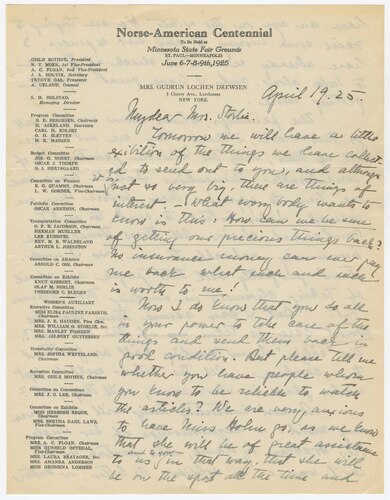 Norse-American Centennial
To Be Held at
Minnesota State Fair Grounds
ST. PAUL—MINNEAPOLIS
June 6-7-8-9th, 1925
GISLE BOTHNE, President
N. T. MOEN, 1st Vice-President
A. C. FLOAN, 2nd Vice-President
J. A. HOLVIK, Secretary
TRYGVE OAS, Treasurer
A. UELAND, Counsel
S. H. HOLSTAD,
Managing Director
Program Committee
B. E. BERGESEN, Chairman
H. ASKELAND, Secretary
CARL D. KOLSKY
O. H. SLETTEN
H. K. MADSEN
Budget Committee
JOS. G. NORBY, Chairman
OSCAR J. THORPE
O. I. HERTSGAARD
Committee on Finance
E. G. QUAMME, Chairman
L. W. GORDER, Vice-Chairman
Publicity Committee
OSCAR ARNESON, Chairman
Transportation Committee
O. P. B. JACOBSON, Chairman
HERMAN MUELLER
LEE KUEMPEL
REV. M. E. WALDELAND
ARTHUR L. JOHNSTON
Committee on Athletics
ARNOLD C. OSS, Chairman
Committee on Exhibits
KNUT GJERSET, Chairman
OLAF M. NORLIE
THEODORE C. BLEGEN
WOMEN'S AUXILIARY
Executive Committee
MISS ELISA PAULINE FARSETH, Chairman
MRS. J. E. HAUGEN, Vice-Chm.
MRS. WILLIAM O. STORLIE, Sec.
MRS. MANLEY FOSSEEN
MRS. GILBERT GUTTERSEN
Hospitality Committee
MRS. SOPHIA WETTELAND, Chairman
Reception Committee
MRS. GISLE BOTHNE, Chairman
Committee on Concessions
MRS. J. G. LEE, Chairman
Committee on Exhibits
MISS HERBORG REQUE, Chairman
MRS. BERTHA DAHL LAWS, Vice-Chairman
Program Committee
MRS. A. C. FLOAN, Chairman
MISS GUNHILD OFTEDAL, Vice-Chairman
MRS. LAURA BRATAGER, Sec.
MRS. AMANDA ANDERSON
MISS GEORGINA LOMMEN
MRS. GUDRUN LOCHEN DREWSEN
5 Cherry Ave., Larchmont
NEW YORK
April 19. 25.
My dear Mrs. Storlie.
Tomorrow we will have a little
exibition of the things we have collect
ed to send out to you, and although
it is not so very big, there are things of
interest. – What everybody wants to
know is this: How can we be sure
of getting our precious things back?
No insurance money can ever pay
me back what such and such
is worth to me!
Now I do know that you do all
in your power to take care of the
things and send them back in
good condition. But please tell me
whether you have people whom
you know to be reliable to watch
the articles? We are very anxious
to have Miss Holm go, as we know
that she will be of great assistance
and to you
to us in that way, that she will
be on the spot all the time and